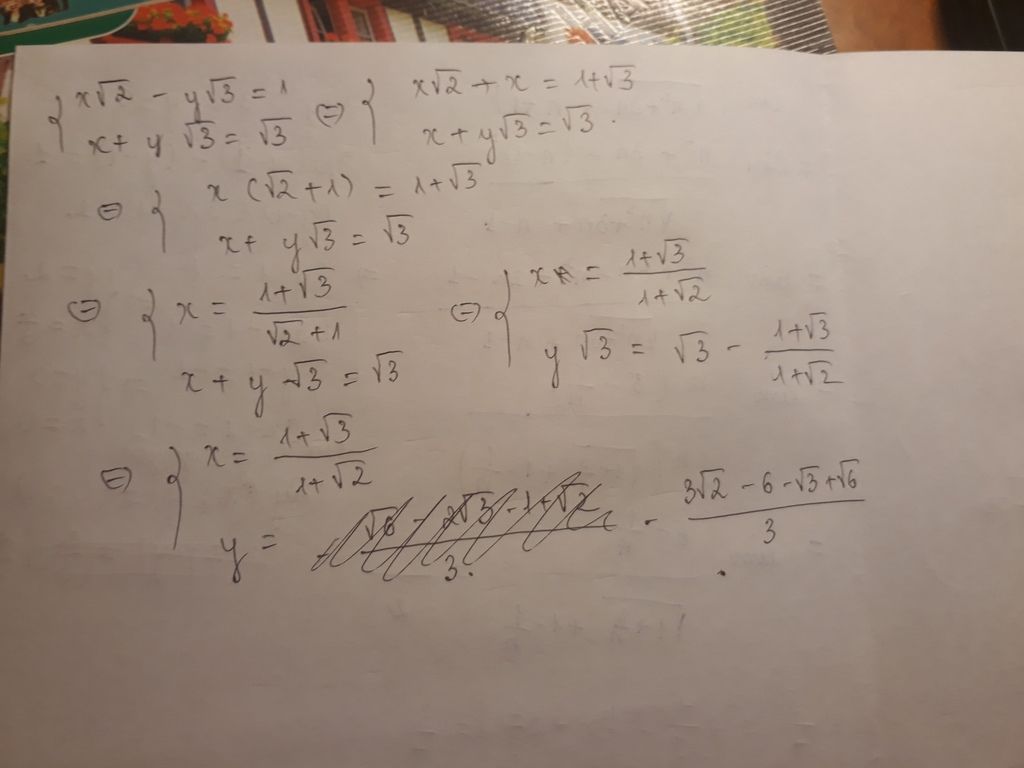 { x√2 - y√3 = 1 ⇔ { x√2 + x = 1+√3
x + y √3 = √3 x + y√3 = √3 .
⇔ { x (√2 + 1) = 1+√3
x + y√3 = √3
⇔ { x = (1+√3)/(√2 + 1) ⇔ { x = (1+√3)/(1+√2)
x + y √3 = √3 y √3 = √3 - (1+√3)/(1+√2)
⇔ { x = (1+√3)/(1+√2)
y = - (3√2 - 6 - √3 + √6)/3